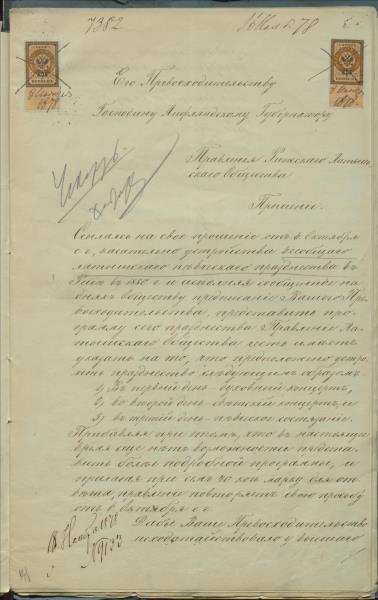 7382
16 Нояб. 78
Его Превосходительству
Господину Лифляндскому Губернатору
Правления Рижскаго Латыш-
скаго Общества
Ссылаясь на свое прошение отъ 6 октября
с. г., касательно устройства всеобщаго
латышскаго певческаго празднества въ
Риге въ 1880 г. и исполняя сообщенное на
дняхъ обществу предписание Вашего Пре-
восходительства, представить про-
грамму сего празднества Правление Ла-
тышскаго Общества честь имеетъ
указать на то, что предположено устро-
ить празднество следующимъ образомъ:
1) Въ первый день - духовный концертъ,
2) во второй день - светский концертъ, и
3) въ третий день - певческое состязание.
Прибавляя при томъ, что въ настоящее
время еще нетъ возможности предста-
вить более подробной программы, и
прилагая при семъ 40 коп. марку для от-
вета, правление повторяетъ свою просьбу
отъ 6 октября с. г.
Дабы Ваше Превосходительство
исходатайствовало у высшаго
18 Нояб. 1878
№ 9133